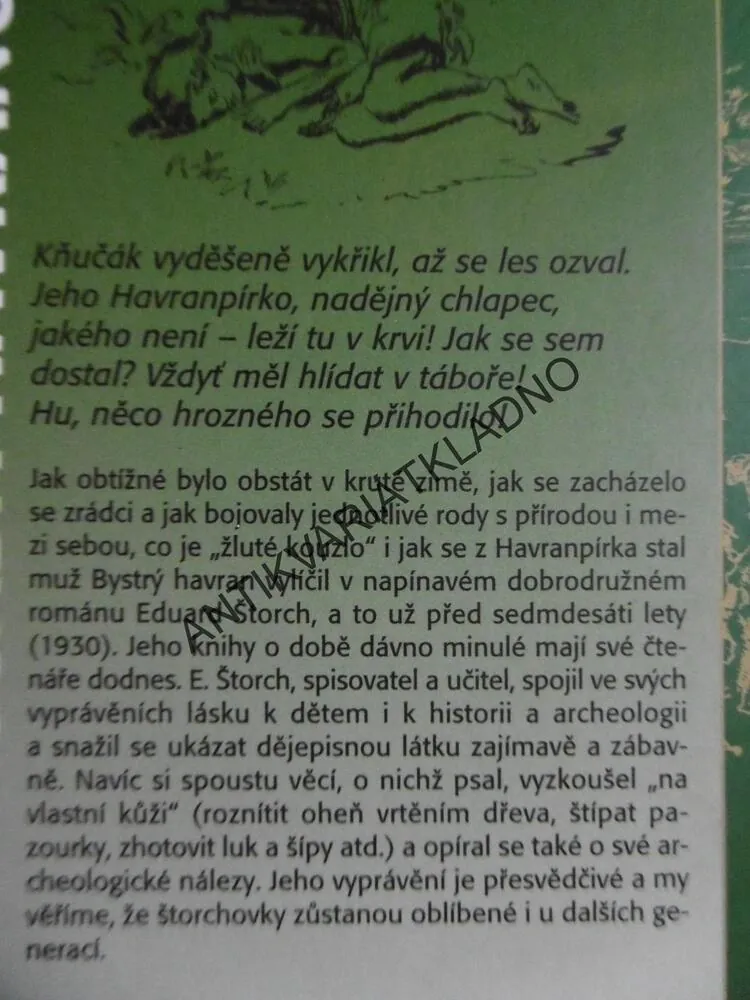 Kňučák vyděšeně vykřikl, až se les ozval.
Jeho Havranpírko, nadějný chlapec,
jakého není – leží tu v krvi! Jak se sem
dostal? Vždyť měl hlídat v táboře!
Hu, něco hrozného se přihodilo!
Jak obtížné bylo obstát v kruté zimě, jak se zacházelo
se zrádci a jak bojovaly jednotlivé rody s přírodou i me-
zi sebou, co je „žluté kouzlo“ i jak se z Havranpírka stal
muž Bystrý havran vylíčil v napínavém dobrodružném
románu Eduard Štorch, a to už před sedmdesáti lety
(1930). Jeho knihy o době dávno minulé mají své čte-
náře dodnes. E. Štorch, spisovatel a učitel, spojil ve svých
vyprávěních lásku k dětem i k historii a archeologii
a snažil se ukázat dějepisnou látku zajímavě a zábav-
ně. Navíc si spoustu věcí, o nichž psal, vyzkoušel „na
vlastní kůži“ (roznítit oheň vrtěním dřeva, štípat pa-
zourky, zhotovit luk a šípy atd.) a opíral se také o své ar-
cheologické nálezy. Jeho vyprávění je přesvědčivé a my
věříme, že štorchovky zůstanou oblíbené i u dalších ge-
nerací.
ANTIKVARIATKLADNO